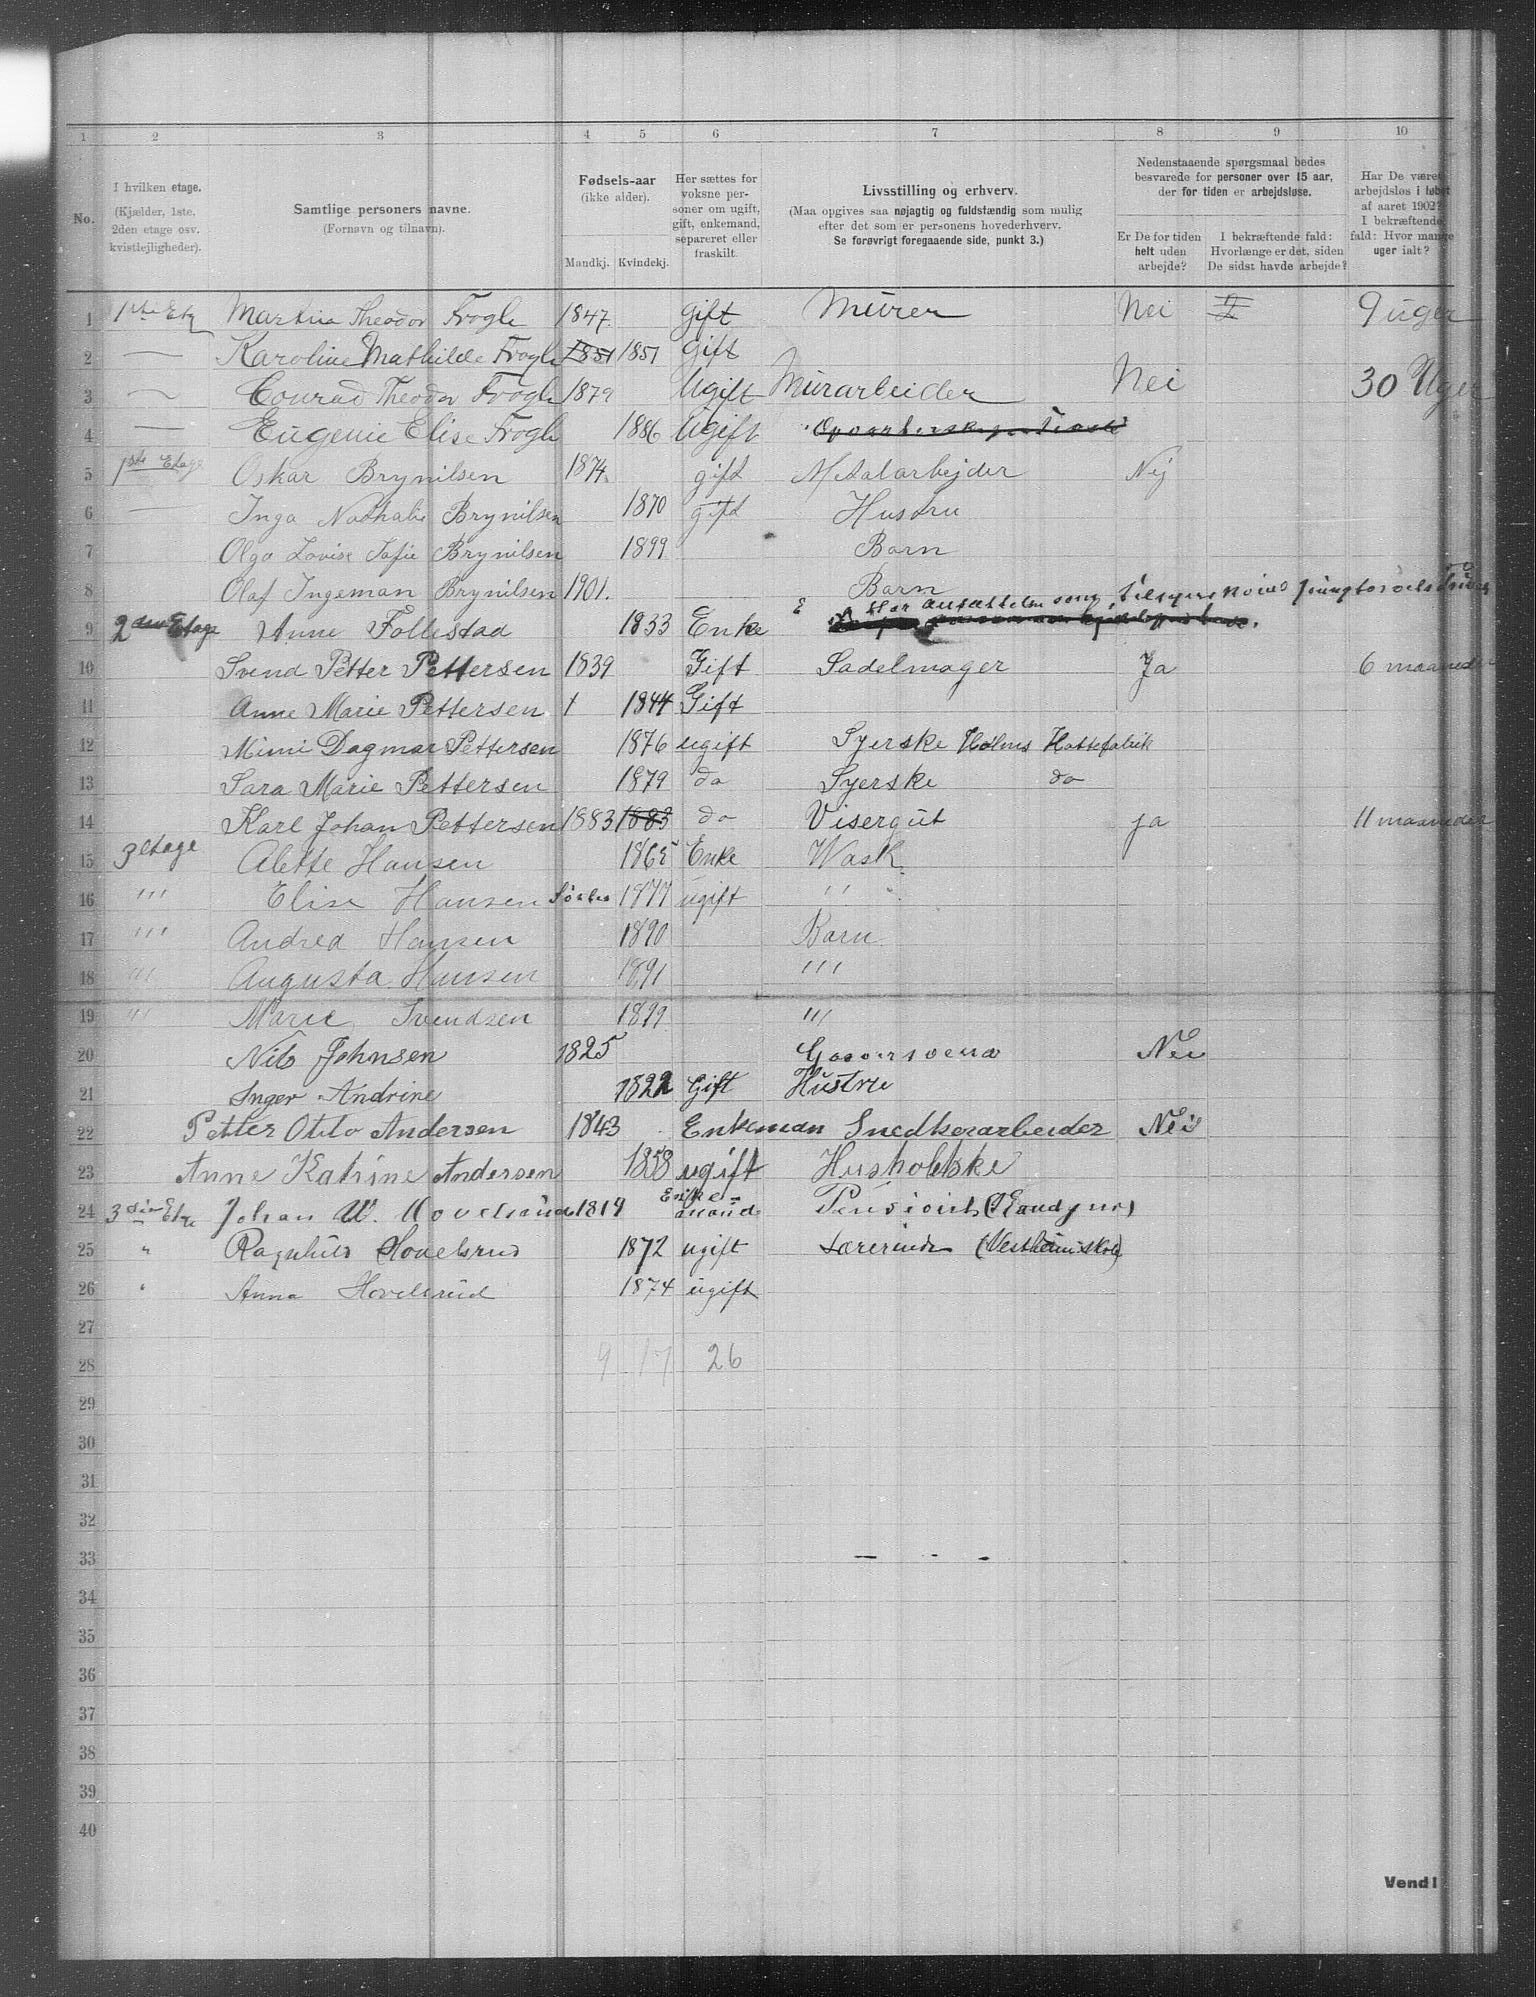 1 2 3 4 5 6 7 8 9 10
No.
I hvilken etage.
(Kjælder, 1ste,
2den etage osv.
kvistlejligheder).
Samtlige personers navne.
(Fornavn og tilnavn).
Fødsels-aar
(ikke alder).
Mandkj. Kvindekj.
Her sættes for
voksne per-
soner om ugift,
gift, enkemand,
separeret eller
fraskilt.
Livsstilling og erhverv.
(Maa opgives saa nøjagtig og fuldstændig som mulig
efter det som er personens hovederhverv.
Se forøvrigt foregaaende side, punkt 3.)
Nedenstaaende spørgsmaal bedes
besvarede for personer over 15 aar,
der for tiden er arbejdsløse.
Er De for tiden
helt uden
arbejde?
I bekræftende fald:
Hvorlænge er det, siden
De sidst havde arbejde?
Har De været
arbejdsløs i løbet
af aaret 1902?
I bekræftende
fald: Hvor mange
uger ialt?
1 1ste Etg Theodor Frogle 1847. gift Murer Nei 9 uger
2 Karoline Mathilde Frogle 1851 1851 gift
3 Conrad Theodor Frogle 1879 Ugift Murarbeider Nei 30 Uger
4 Eugenie Elise Frogle 1886 Ugift
5 1ste Etage Oskar Brynilsen 1874. gift Metalarbejder Nej
6 Inga Nathalie Brynilsen 1870 gift Hustru
7 Olga Lovise Sofie Brynilsen 1899 Barn
8 Olaf Ingeman Brynilsen 1901. Barn
9 2den Etage Anne Follestad 1833 Enke
10 Svend Petter Pettersen 1839 Gift Sadelmager Ja 6 maaneder
11 Anne Marie Pettersen 1 1844 Gift
12 Mimi Dagmar Pettersen 1876 ugift Syerske Holms Hattefabrik
13 Sara Marie Pettersen 1879 do Syerske do
14 Karl Johan Pettersen 1883 1883 do Visergut ja 11 maaneder
15 3 etage Alette Hansen 1865 Enke Wask.
16 ''' Elise Hansen 1877 ugift ''
17 ''' Andrea Hansen 1890 Barn
18 ''' Augusta Hansen 1891 '''
19 ''' Marie Svendsen 1899 '''
20 Nils Johnsen 1825 Nei
21 Inger Andrine 1822 Gift Hustru
22 Petter Otto Andersen 1843 Enkeman Snedkerarbeider Nei
23 Anne Katrine Andersen 1858 ugift Husholdske
24 3die Etge Johan W. Hovelsrud 1819 Enke-
mand Pensionist
25 " Ragnhild Hovelsrud 1872 ugift Lærerinde (Vestheim skole)
26 " Anna Hovelsrud 1874 ugift
27
28 9 17 26
29
30
31
32
33
34
35
36
37
38
39
40
Vend!